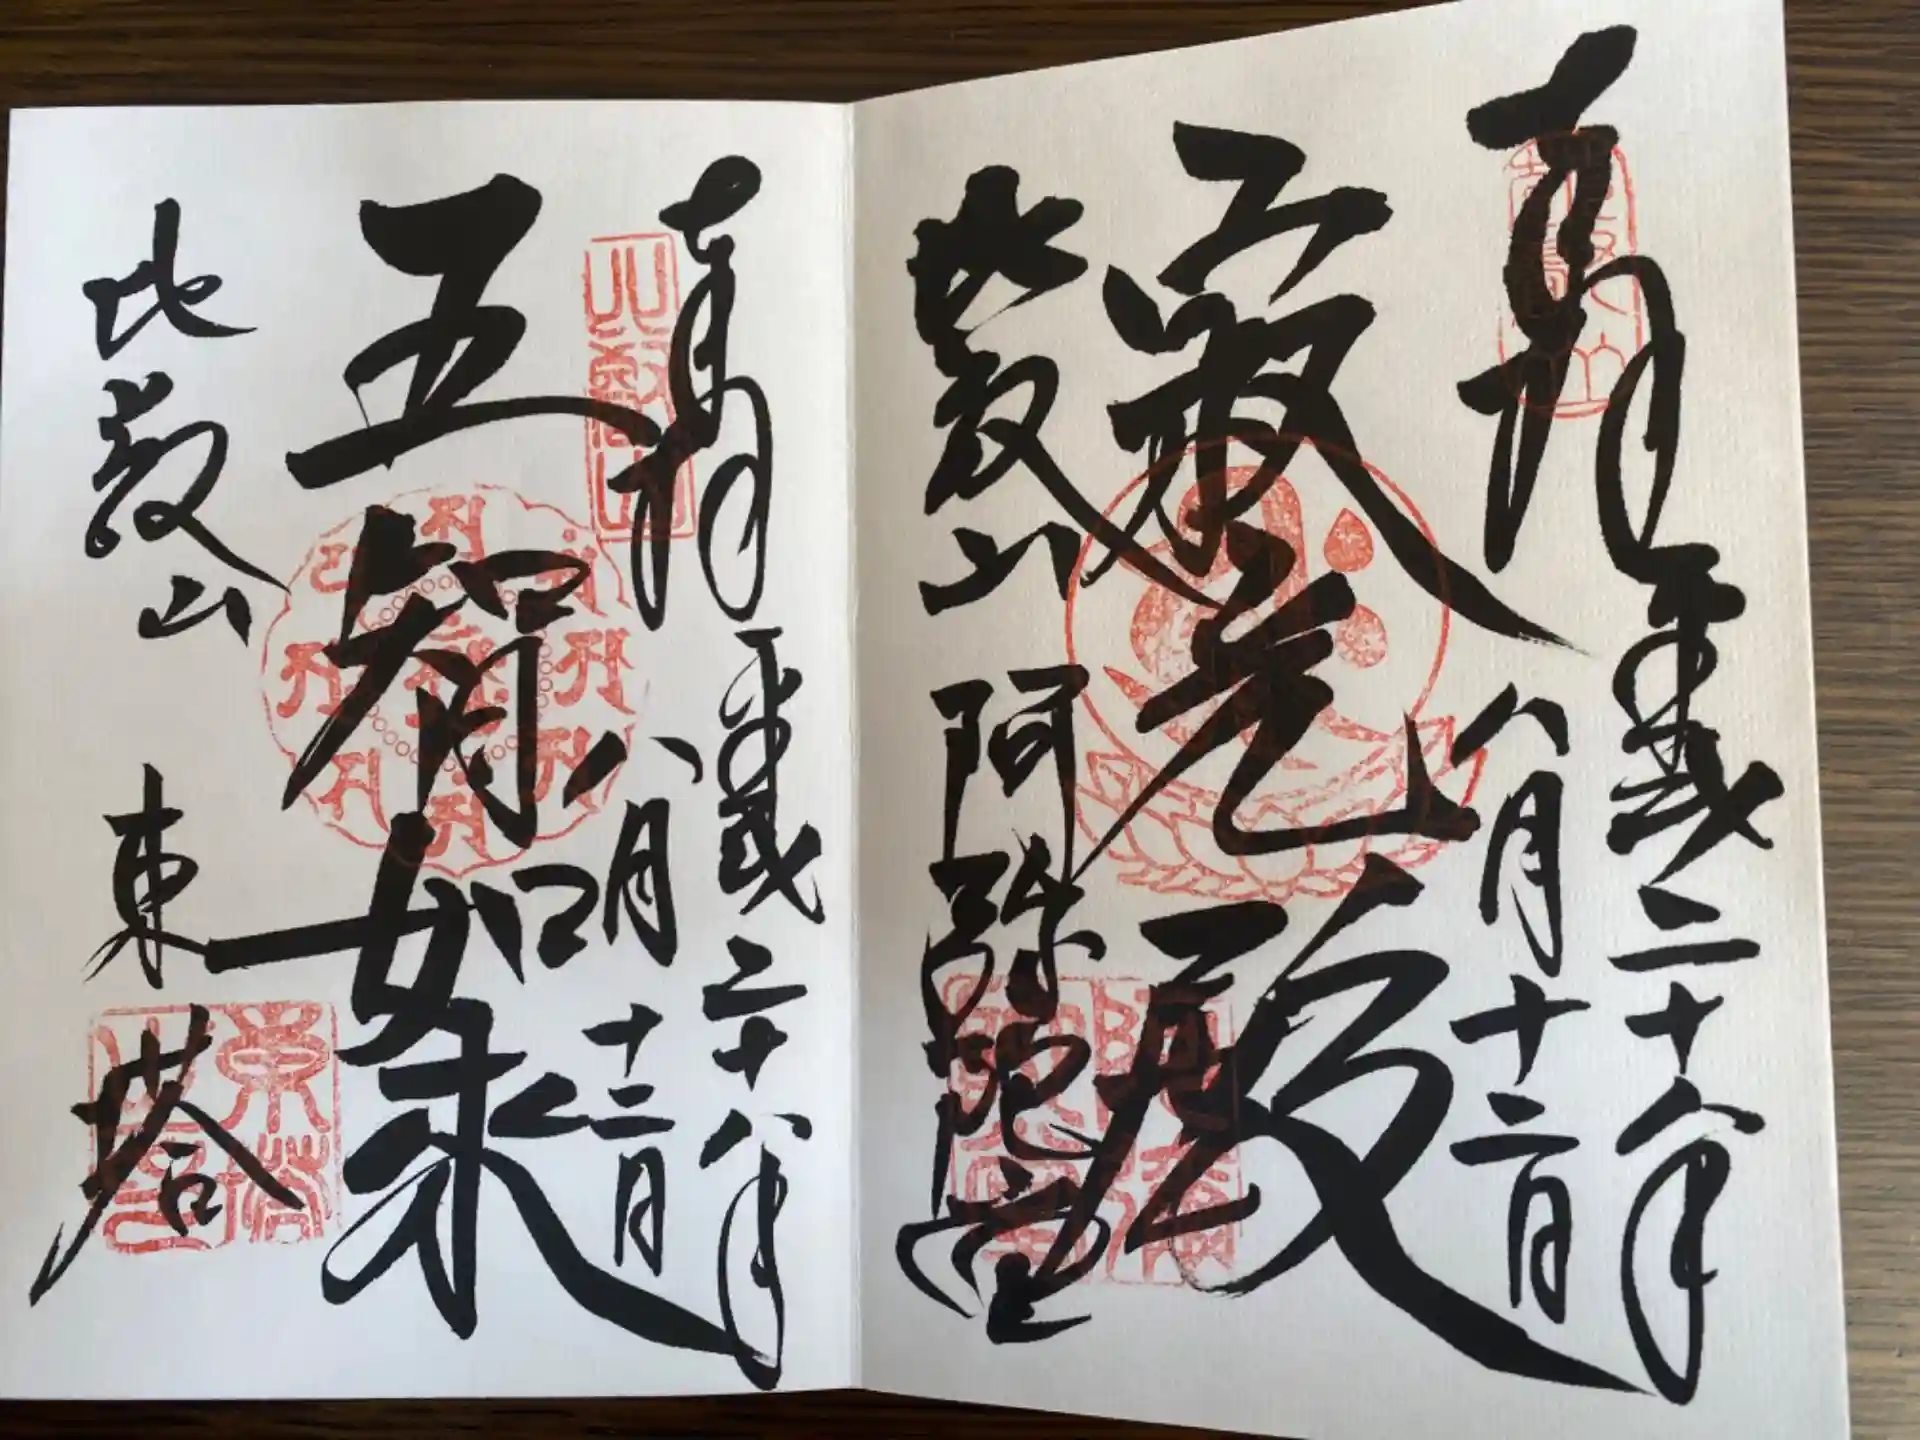 奉拝
平成二十八年
八月十二日
寂光殿
比叡山 阿弥陀堂
奉拝
平成二十八年
八月十二日
比叡山
五智如来
比叡山 東塔